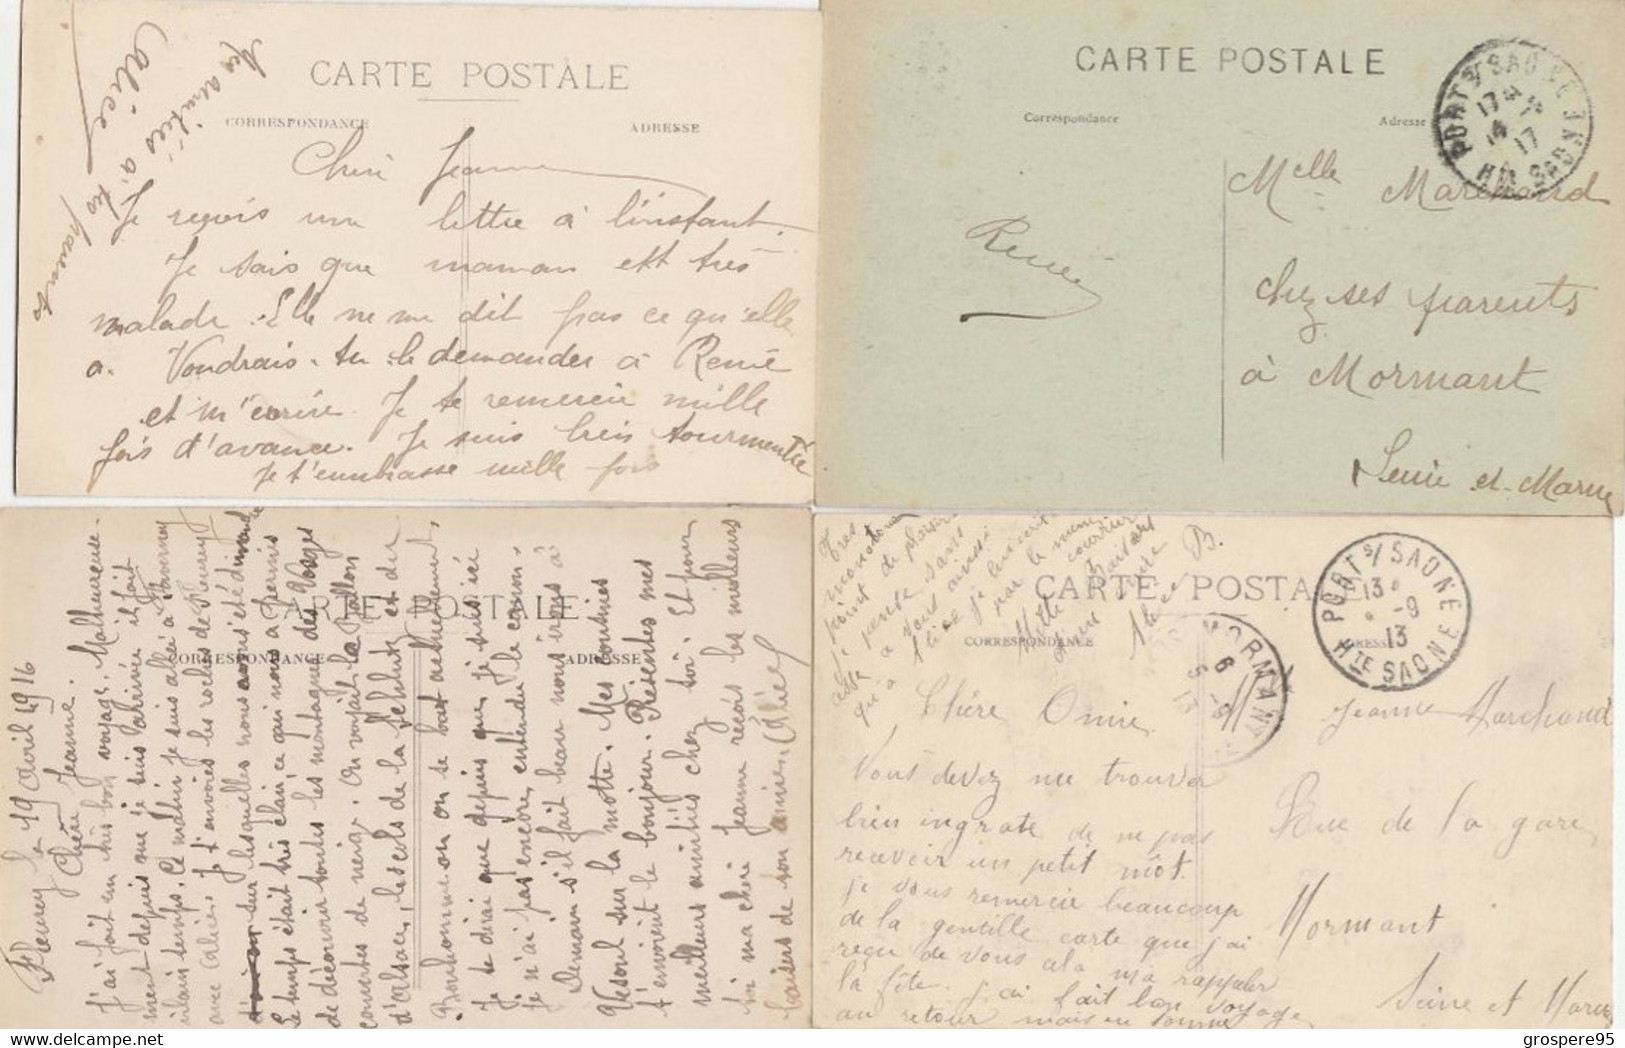 CARTE POSTALE
CORRESPONDANCE
ADRESSE
Alice
Chère Jeanne
Je reçois une lettre à l'instant.
Je sais que maman est très
malade. Elle ne me dit pas ce qu'elle
a. Voudrais-tu le demander à René
et m'écrire. Je te remercie mille
fois d'avance. Je suis bien tourmentée
Je t'embrasse mille fois
CARTE POSTALE
Correspondance
Adresse
PORT S/ SAONE
17
17
Hte SAONE
Melle Marchand
chez ses parents
à Mormant
Seine et Marne
René
CARTE POSTALE
CORRESPONDANCE
ADRESSE
Fleurey le 19 avril 1916
Chère Jeanne.
J'ai fait un très bon voyage. Malheureuse-
ment depuis que je suis arrivée il fait
vilain temps. Ce matin je suis allée à Faverney
avec Alice. Je t'envoies les roches de Fleurey
sur lesquelles nous avons été dimanche
le temps était très clair ce qui nous a permis
de découvrir toutes les montagnes des Vosges
couvertes de neige. On voyait le Ballon
d'Alsace, les cols de la Schlucht et du
Bonhomme on se bat actuellement.
Je te dirai que depuis que je suis ici
je n'ai pas encore entendu le canon.
Demain s'il fait beau nous irons à
Vesoul sur la motte. Mes cousines
t'envoient le bonjour. Présentes mes
meilleurs amitiés chez toi. Et pour
toi ma chère Jeanne reçois les meilleurs
baisers de ton amie.
CARTE POSTALE
CORRESPONDANCE
ADRESSE
PORT S/ SAONE
13
-9
13
Hte SAONE
MORMANT
Chère Amie
Vous devez me trouver
bien ingrate de ne pas
recevoir un petit mot.
je vous remercie beaucoup
de la gentille carte que j'ai
reçu de vous
la fête. j'ai fait bon voyage
au retour mais
Jeanne Marchand
Rue de la gare
Mormant
Seine et Marne
grospere95